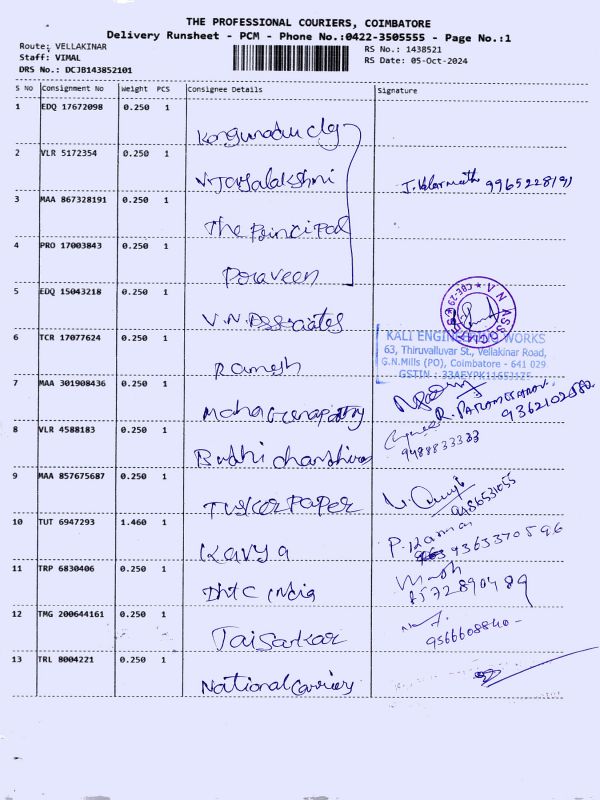 THE PROFESSIONAL COURIERS, COIMBATORE
Delivery Runsheet - PCM - Phone No.:0422-3505555 - Page No.:1
Route: VELLAKINAR
Staff: VIMAL
DRS No.: DCJB143852101
RS No.: 1438521
RS Date: 05-Oct-2024
S No Consignment No Weight PCS Consignee Details Signature
1 EDQ 17672098 0.250 1
Kongunadu clg
2 VLR 5172354 0.250 1
V.Jayalakshmi
9965228191
3 MAA 867328191 0.250 1
The Principal
4 PRO 17003843 0.250 1
Praveen
5 EDQ 15043218 0.250 1
V.N.Associates
6 TCR 17077624 0.250 1
Ramesh
KALI ENGINEERING WORKS
63, Thiruvalluvar St., Vellakinar Road,
G.N.Mills (PO), Coimbatore - 641 029.
GSTIN :
7 MAA 301908436 0.250 1
R. PARAMESWARAN.
9362102580
8 VLR 4588183 0.250 1
9488833333
9 MAA 857675687 0.250 1
Tusker Paper
9486531055
10 TUT 6947293 1.460 1
Kavya
9363370596
11 TRP 6830406 0.250 1
DHTC India
8572890489
12 TMG 200644161 0.250 1
Jai Sankar
9566608840
13 TRL 8004221 0.250 1
National Carriers